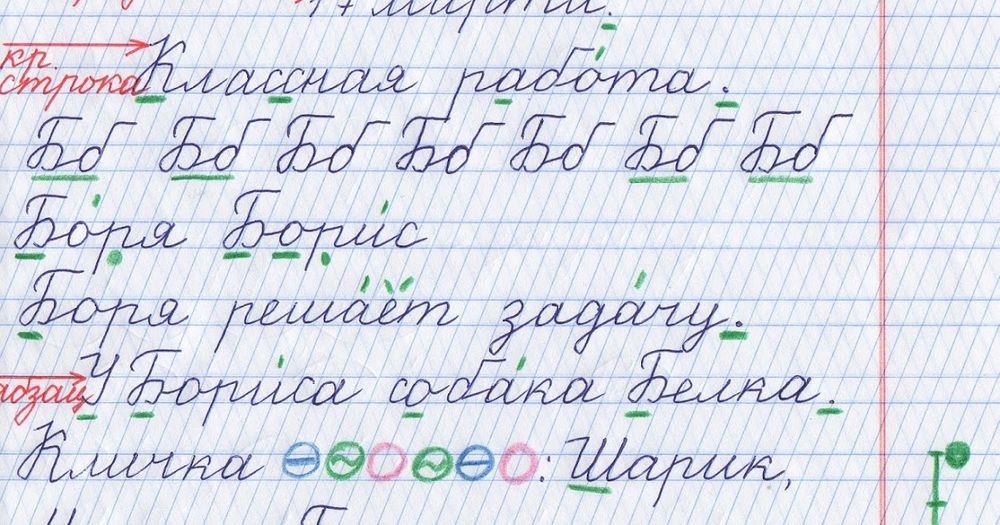 17 марта.
кр.
строка Классная работа.
Бб Бб Бб Бб Бб Бб Бб
Боря Борис
Боря решает задачу.
абзац У Бориса собака Белка.
Кличка : Шарик,